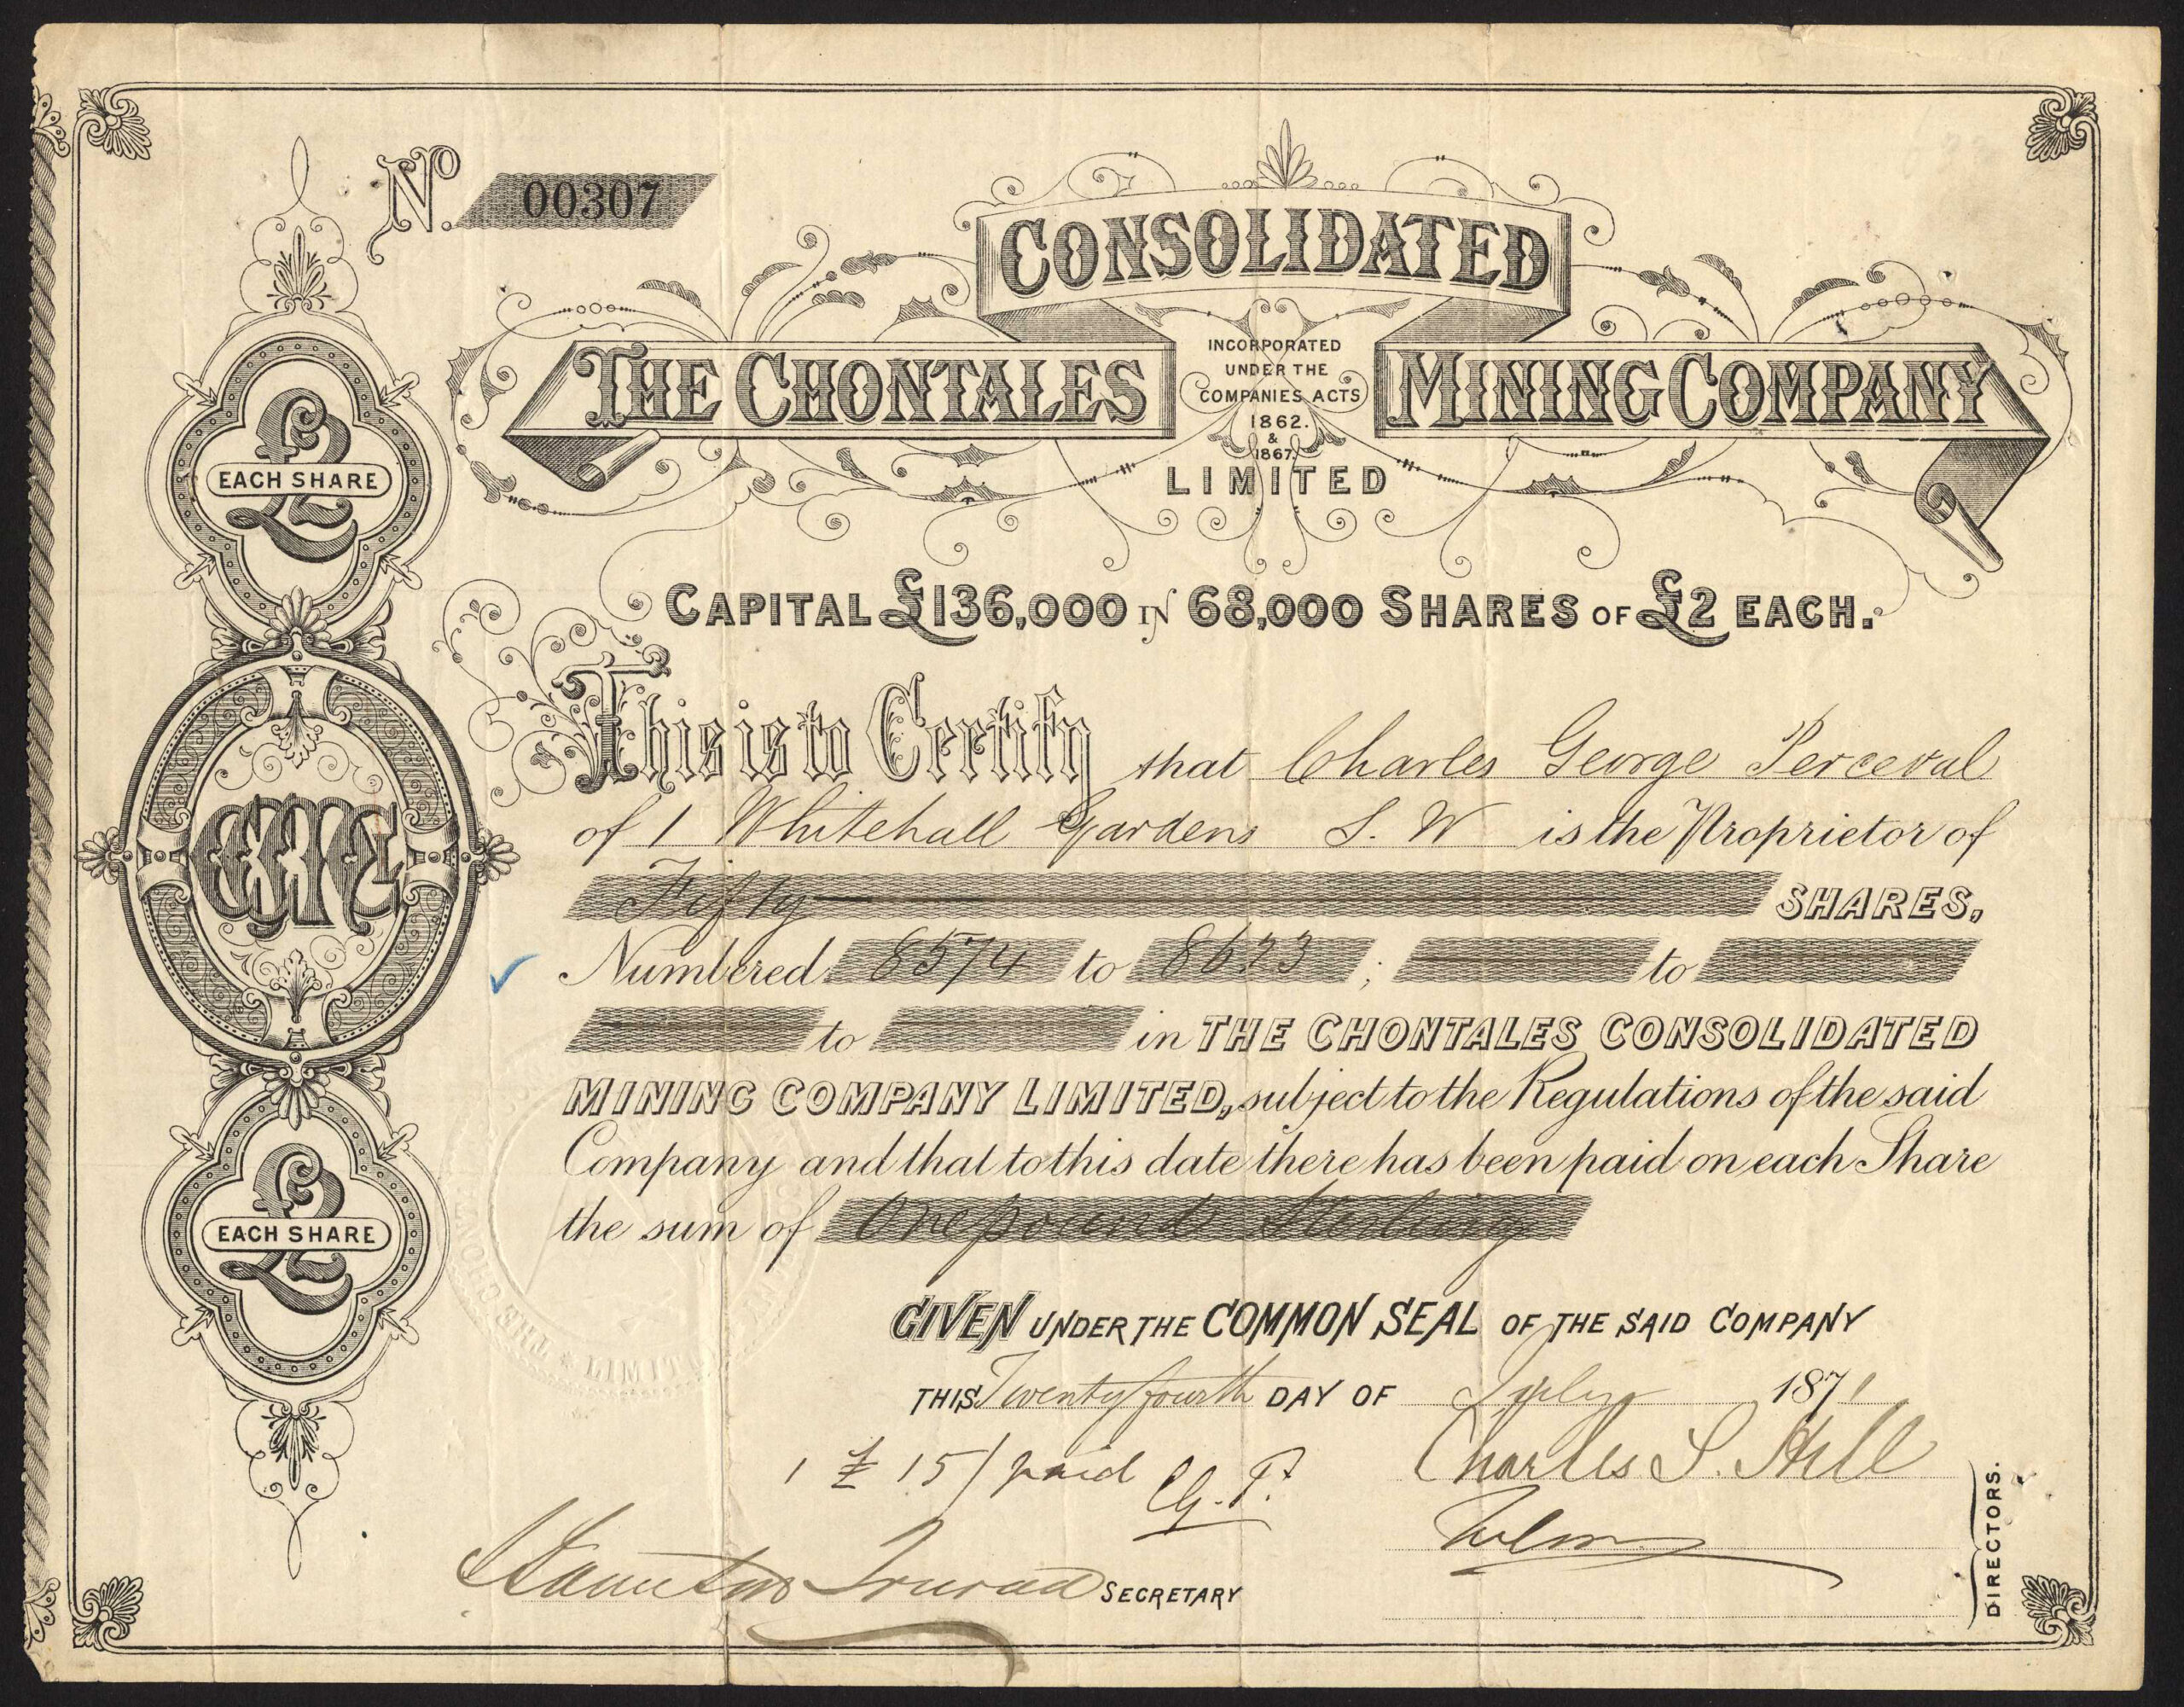 No. 00307
CONSOLIDATED
THE CHONTALES MINING COMPANY
INCORPORATED
UNDER THE
COMPANIES ACTS
1862.
&
1867.
LIMITED
£2
EACH SHARE
CAPITAL £136,000 IN 68,000 SHARES OF £2 EACH.
This is to Certify that Charles George Perceval
of 1 Whitehall Gardens S. W is the Proprietor of
Fifty SHARES,
Numbered 8574 to 8623 ; to
to in THE CHONTALES CONSOLIDATED
MINING COMPANY LIMITED, subject to the Regulations of the said
Company and that to this date there has been paid on each Share
the sum of One pound Sterling
CCMCL
£2
EACH SHARE
THE CHONTALES
LIMITED
GIVEN UNDER THE COMMON SEAL OF THE SAID COMPANY
THIS Twenty fourth DAY OF July 1871
1 £ 15/ paid
Charles S. Hill
SECRETARY
DIRECTORS.